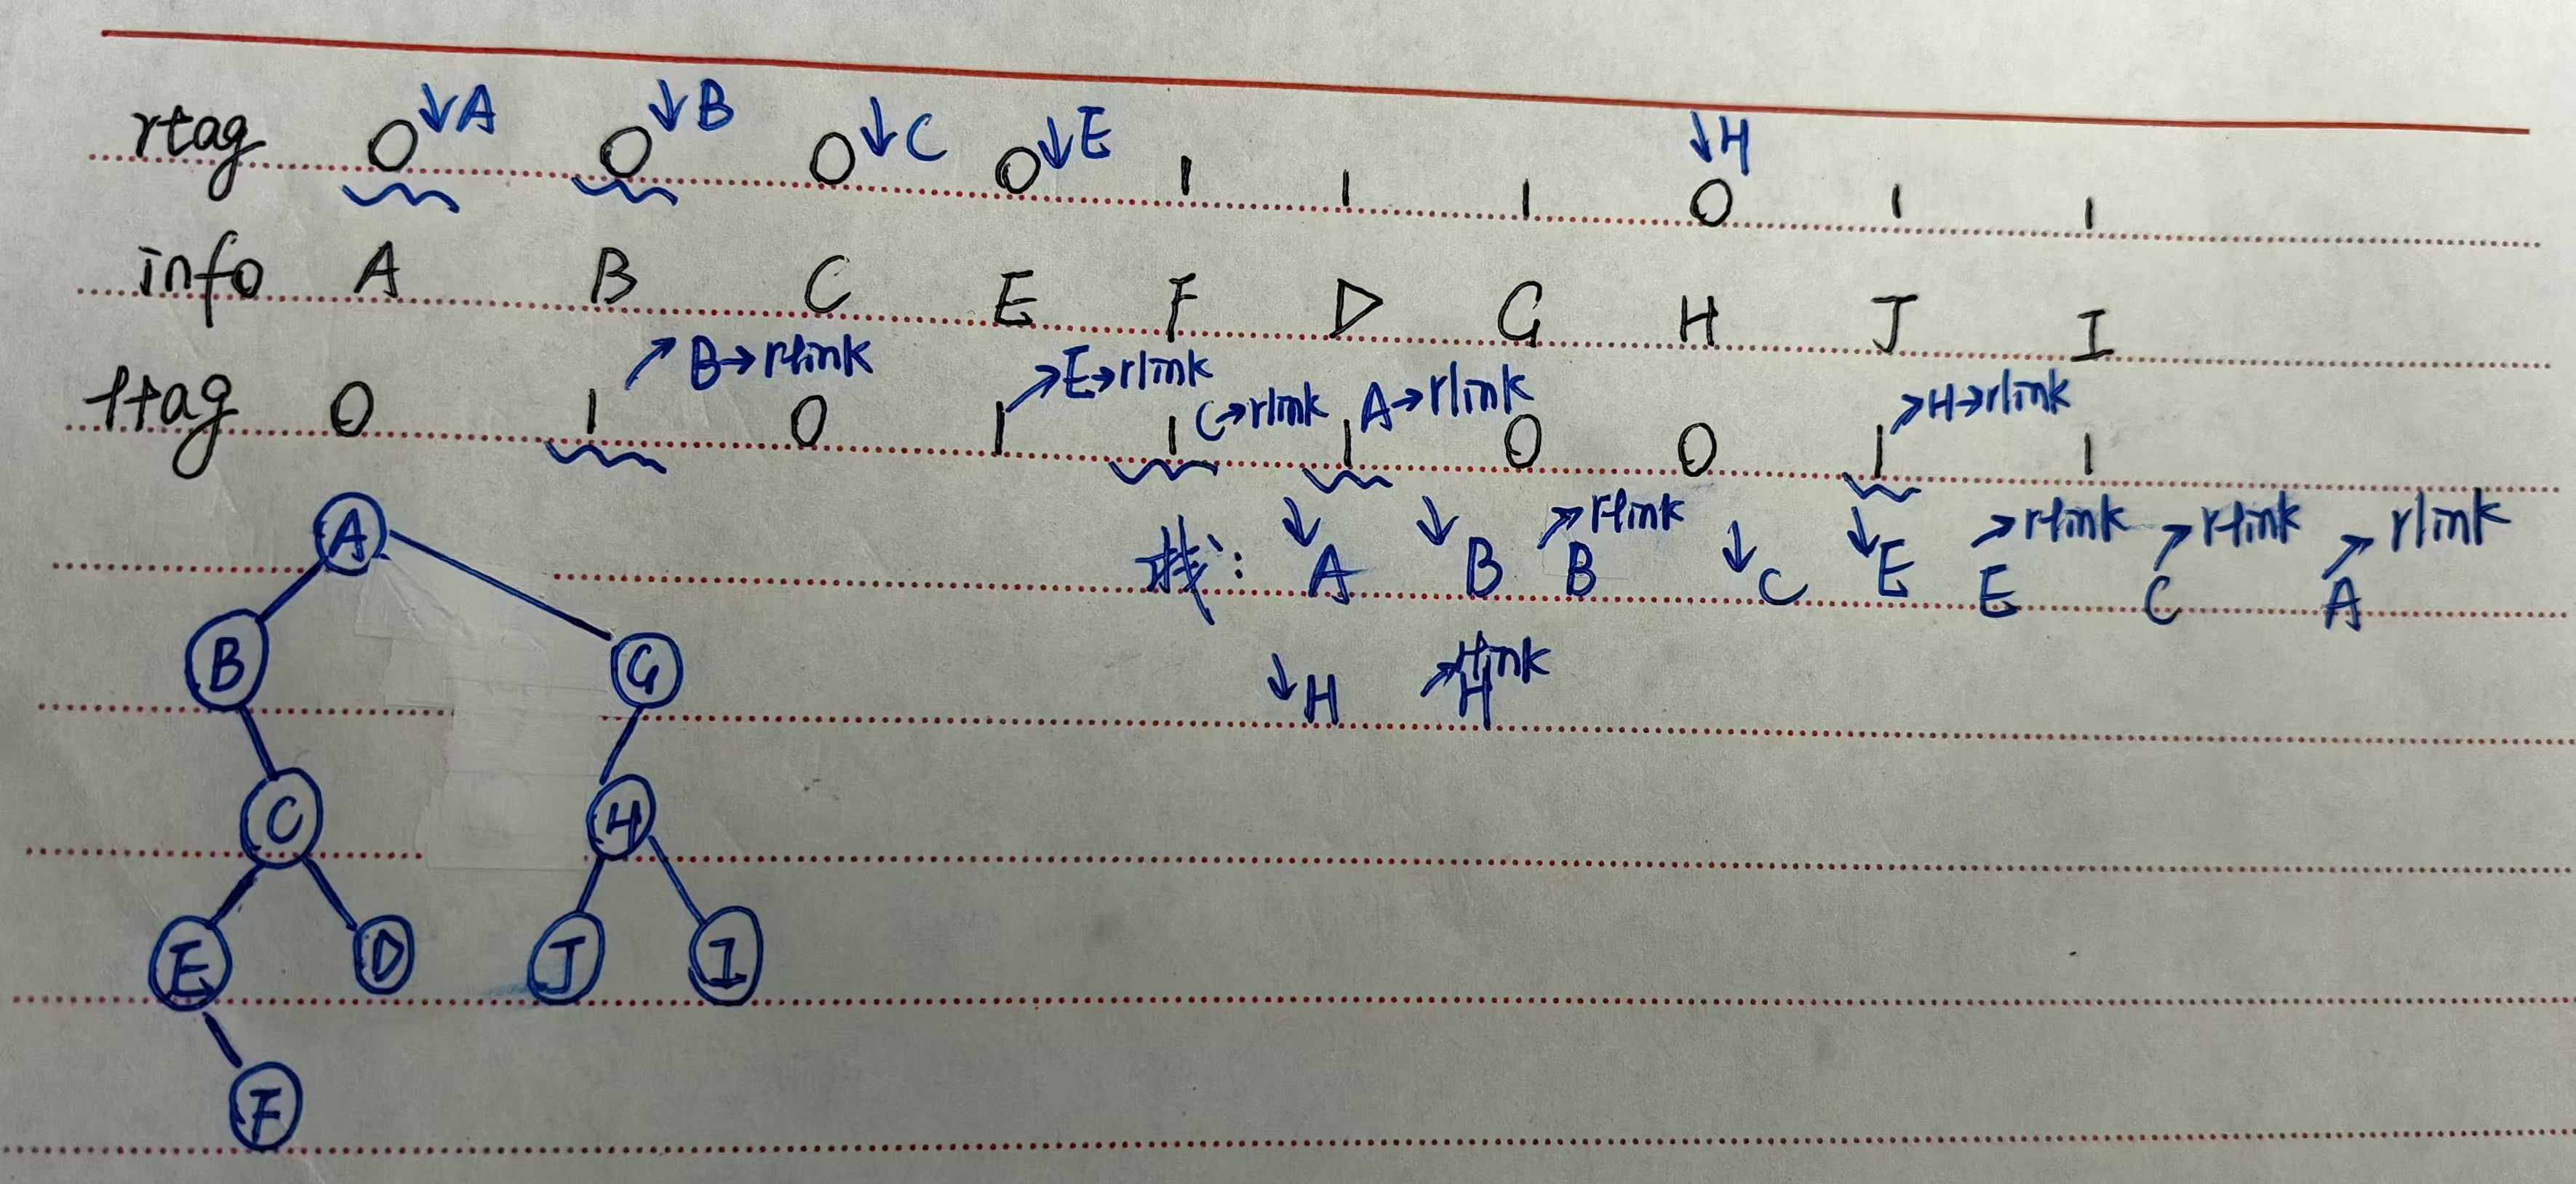 rtag 0 ↓A 0 ↓B 0 ↓C 0 ↓E 1 1 1 ↓H 0 1 1
info A B C E F D G H J I
↗ B→rlink ↗E→rlink C→rlink A→rlink ↗H→rlink
ltag 0 1 0 1 1 1 0 0 1 1
栈: ↓A ↓B ↗rlink B ↓C ↓E ↗rlink E ↗rlink C ↗rlink A
↓H ↗rlink H
A
B G
C H
E D J I
F